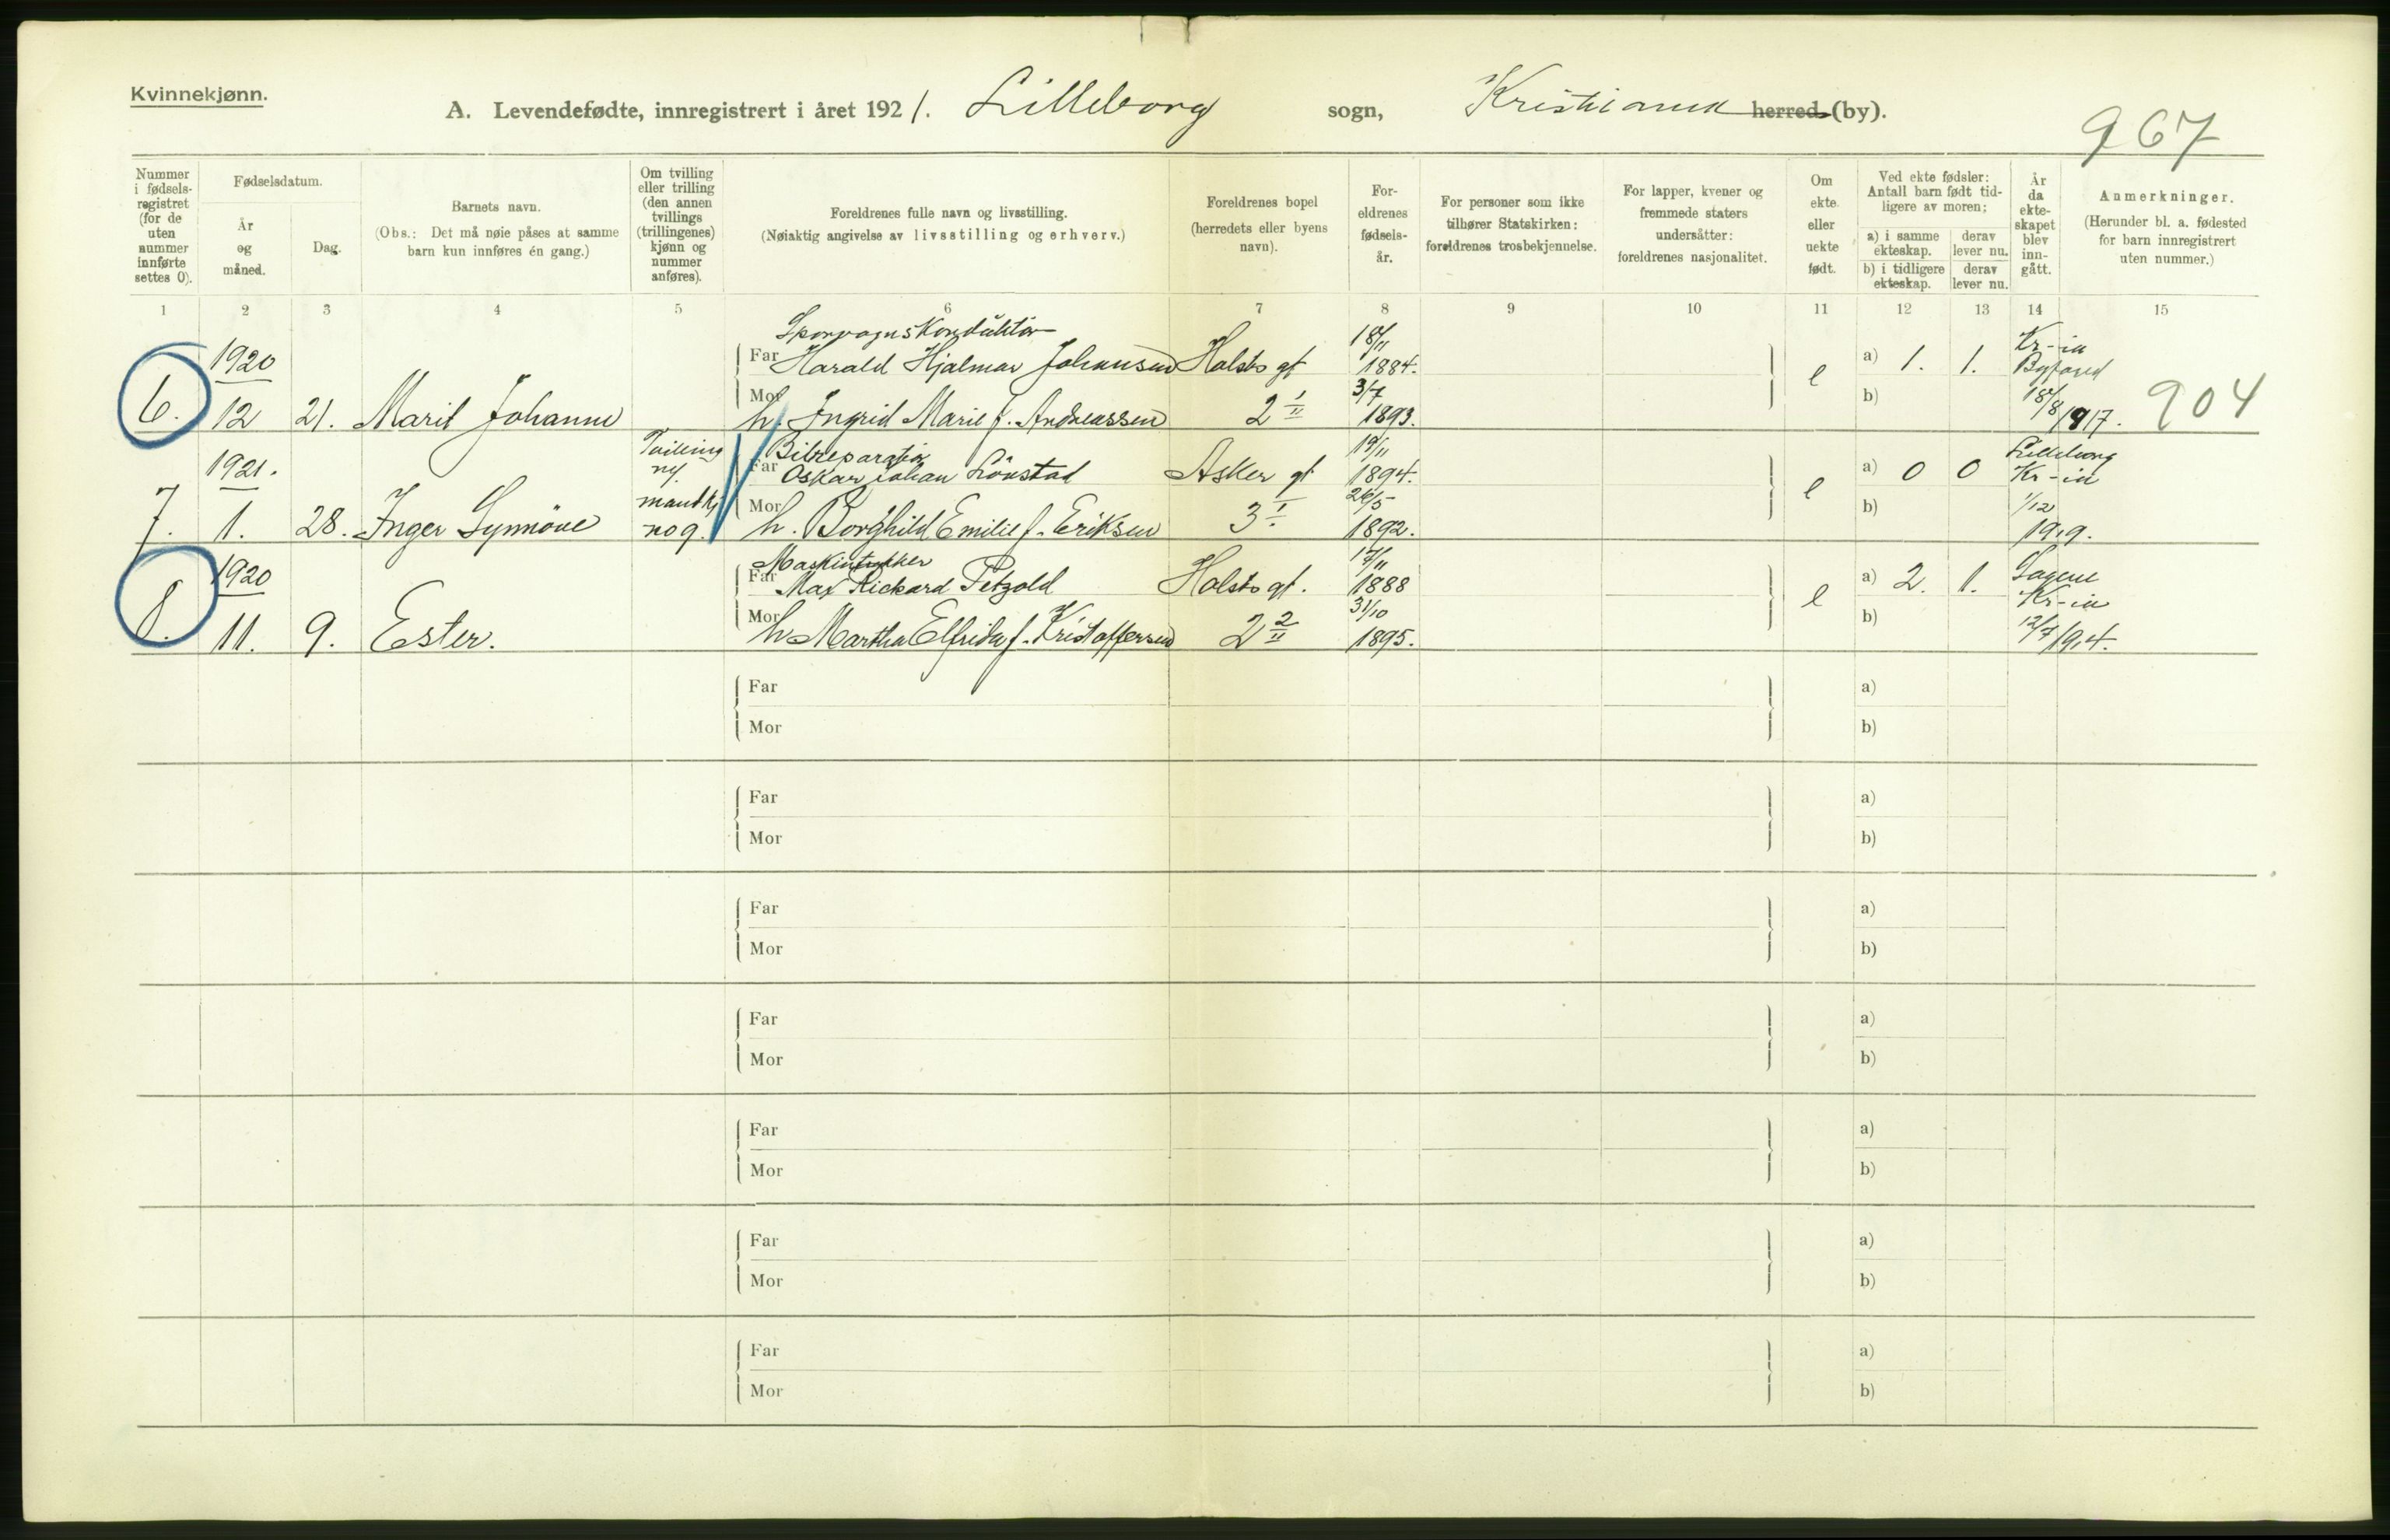 Kvinnekjønn.
A. Levendefødte, innregistrert i året 1921. Lilleborg sogn, Kristiania herred (by).
967
Nummer i fødsels-registret (for de uten nummer innførte settes 0).
Fødselsdatum.
År og måned.
Dag.
Barnets navn.
(Obs.: Det må nøie påses at samme barn kun innføres én gang.)
Om tvilling eller trilling (den annen tvillings (trillingenes) kjønn og nummer anføres).
Foreldrenes fulle navn og livsstilling.
(Nøiaktig angivelse av livsstilling og erhverv.)
Foreldrenes bopel (herredets eller byens navn).
For-eldrenes fødsels-år.
For personer som ikke tilhører Statskirken: foreldrenes trosbekjennelse.
For lapper, kvener og fremmede staters undersåtter: foreldrenes nasjonalitet.
Om ekte eller uekte født.
Ved ekte fødsler: Antall barn født tid-ligere av moren;
a) i samme ekteskap.
derav lever nu.
b) i tidligere ekteskap.
derav lever nu.
År da ekte-skapet blev inn-gått.
Anmerkninger.
(Herunder bl. a. fødested for barn innregistrert uten nummer.)
1 2 3 4 5 6 7 8 9 10 11 12 13 14 15
Sporvognskonduktör
1920 Far Harald Hjalmar Johansen Holsts gt 18/11 1884. e a) 1. 1. Kr-ia
6. 12 21. Marit Johanne Mor h. Ingrid Marie f. Andreassen 2 I/II 3/7 1893. b) 18/8 1917. 904
Tvilling Bilreparatör 19/11 Lilleborg
1921. Far Oskar Johan Lönstad Asker gt 1894. e a) 0 0 Kr-ia
7. 1. 28. Inger Synnöve no 9. Mor h. Borghild Emilie f. Eriksen 3 I 26/5 1892. b) 1/12 1919.
Maskintrykker 17/11 Sagene
1920 Far Max Rickard Petzold Holsts gt. 1888 e a) 2. 1. Kr-ia
8. 11. 9. Ester. Mor h Martha Elfrida f. Kristoffersen 2 2/II 31/10 1895. b) 12/7 1914.
Far a)
Mor b)
Far a)
Mor b)
Far a)
Mor b)
Far a)
Mor b)
Far a)
Mor b)
Far a)
Mor b)
Far a)
Mor b)